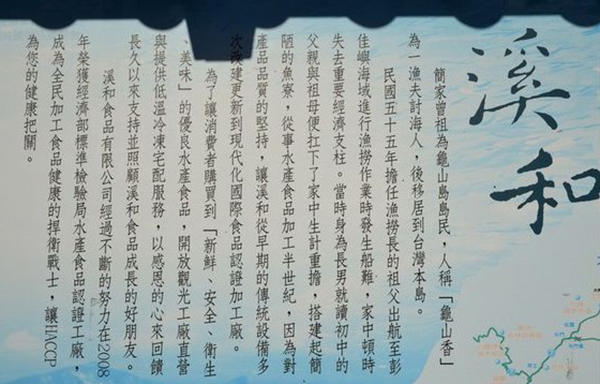 溪和
簡家曾祖為龜山島島民,人稱「龜山香」
為一漁夫討海人,後移居到台灣本島。
民國五十五年擔任漁撈長的祖父出航至彭
佳嶼海域進行漁撈作業時發生船難,家中頓時
失去重要經濟支柱。當時身為長男就讀初中的
父親與祖母便扛下了家中生計重擔,搭建起簡
陋的魚寮,從事水產食品加工半世紀,因為對
產品品質的堅持,讓溪和從早期的傳統設備多
次改建更新到現代化國際食品認證加工廠。
為了讓消費者購買到「新鮮、安全、衛生
、美味」的優良水產食品,開放觀光工廠直營
與提供低溫冷凍宅配服務,以感恩的心來回饋
長久以來支持並照顧溪和食品成長的好朋友。
溪和食品有限公司經過不斷的努力在2008
年榮獲經濟部標準檢驗局水產食品認證工廠,
成為全民加工食品健康的捍衛戰士,讓HACCP
為您的健康把關。